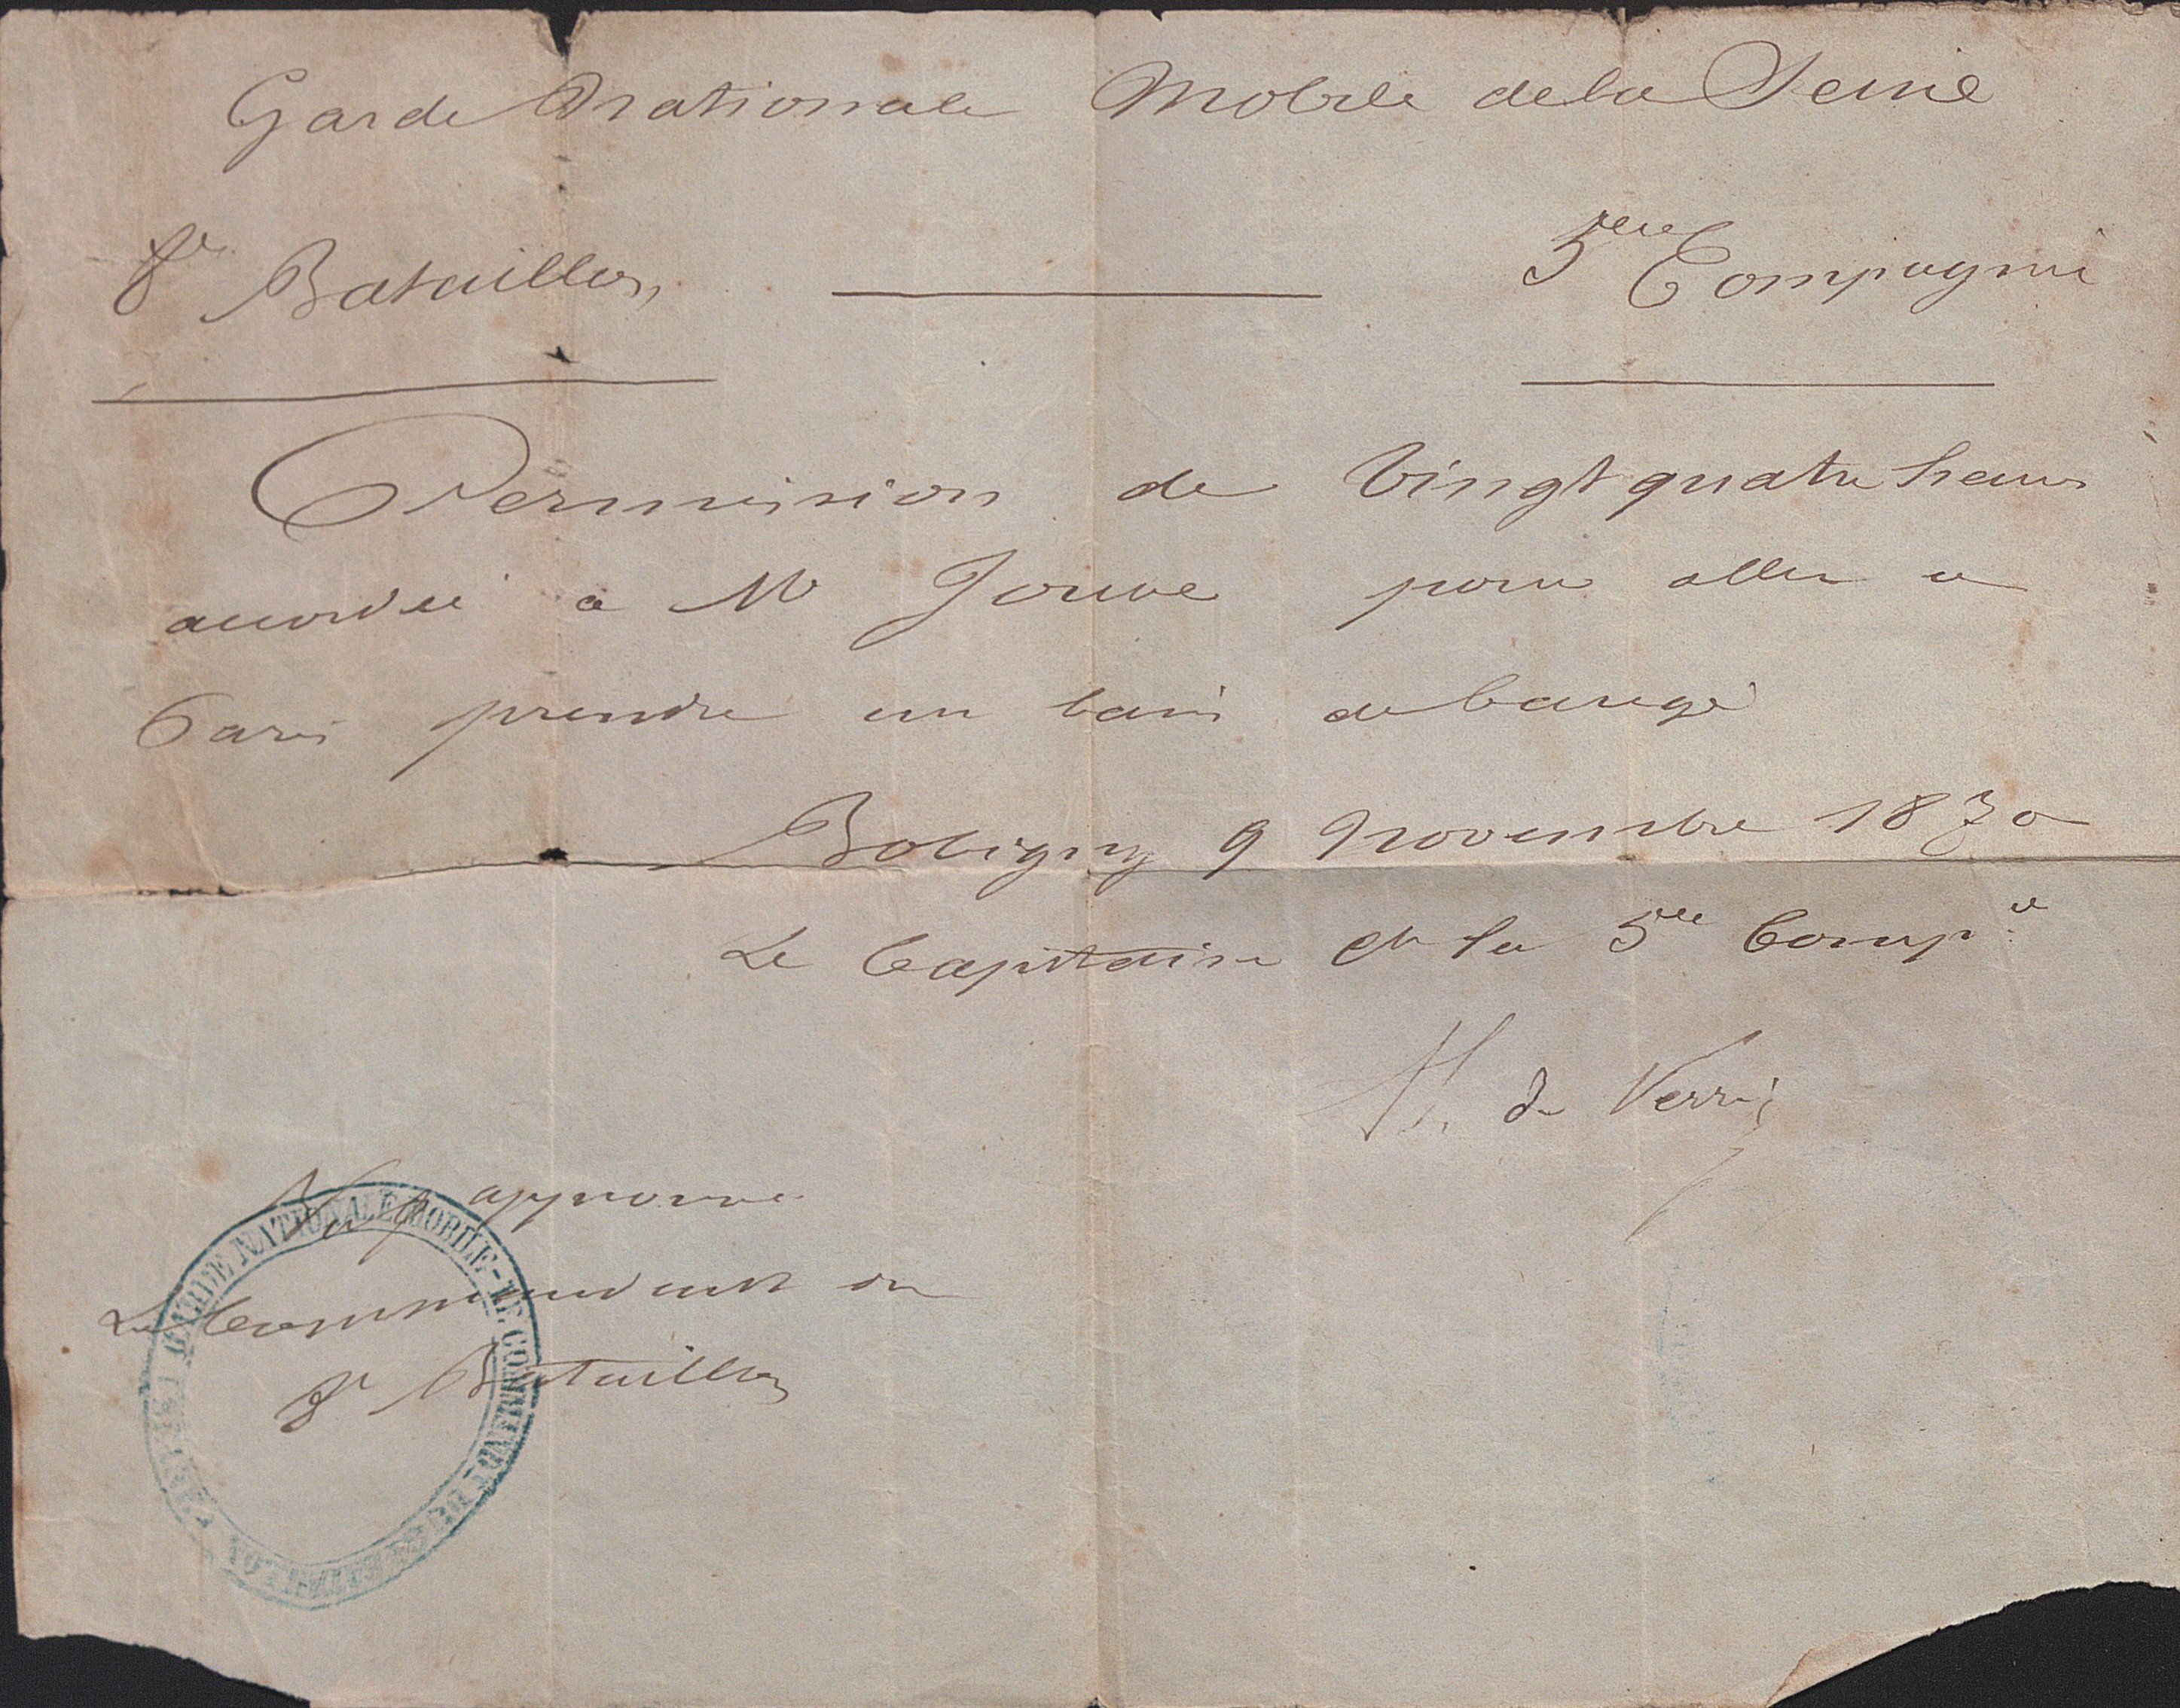 Garde Nationale Mobile de la Seine
8e Bataillon
5eme Compagnie
Permission de Vingt quatre heures
accordée a Mr Jouve pour aller a
Paris prendre un bain de barège
Bobigny 9 Novembre 1870
Le Capitaine de la 5me Compie
de
Vu & approuvé
Le Commandant du
8e Bataillon
GARDE NATIONALE MOBILE - LE COMMANDANT DU 8E BATAILLON